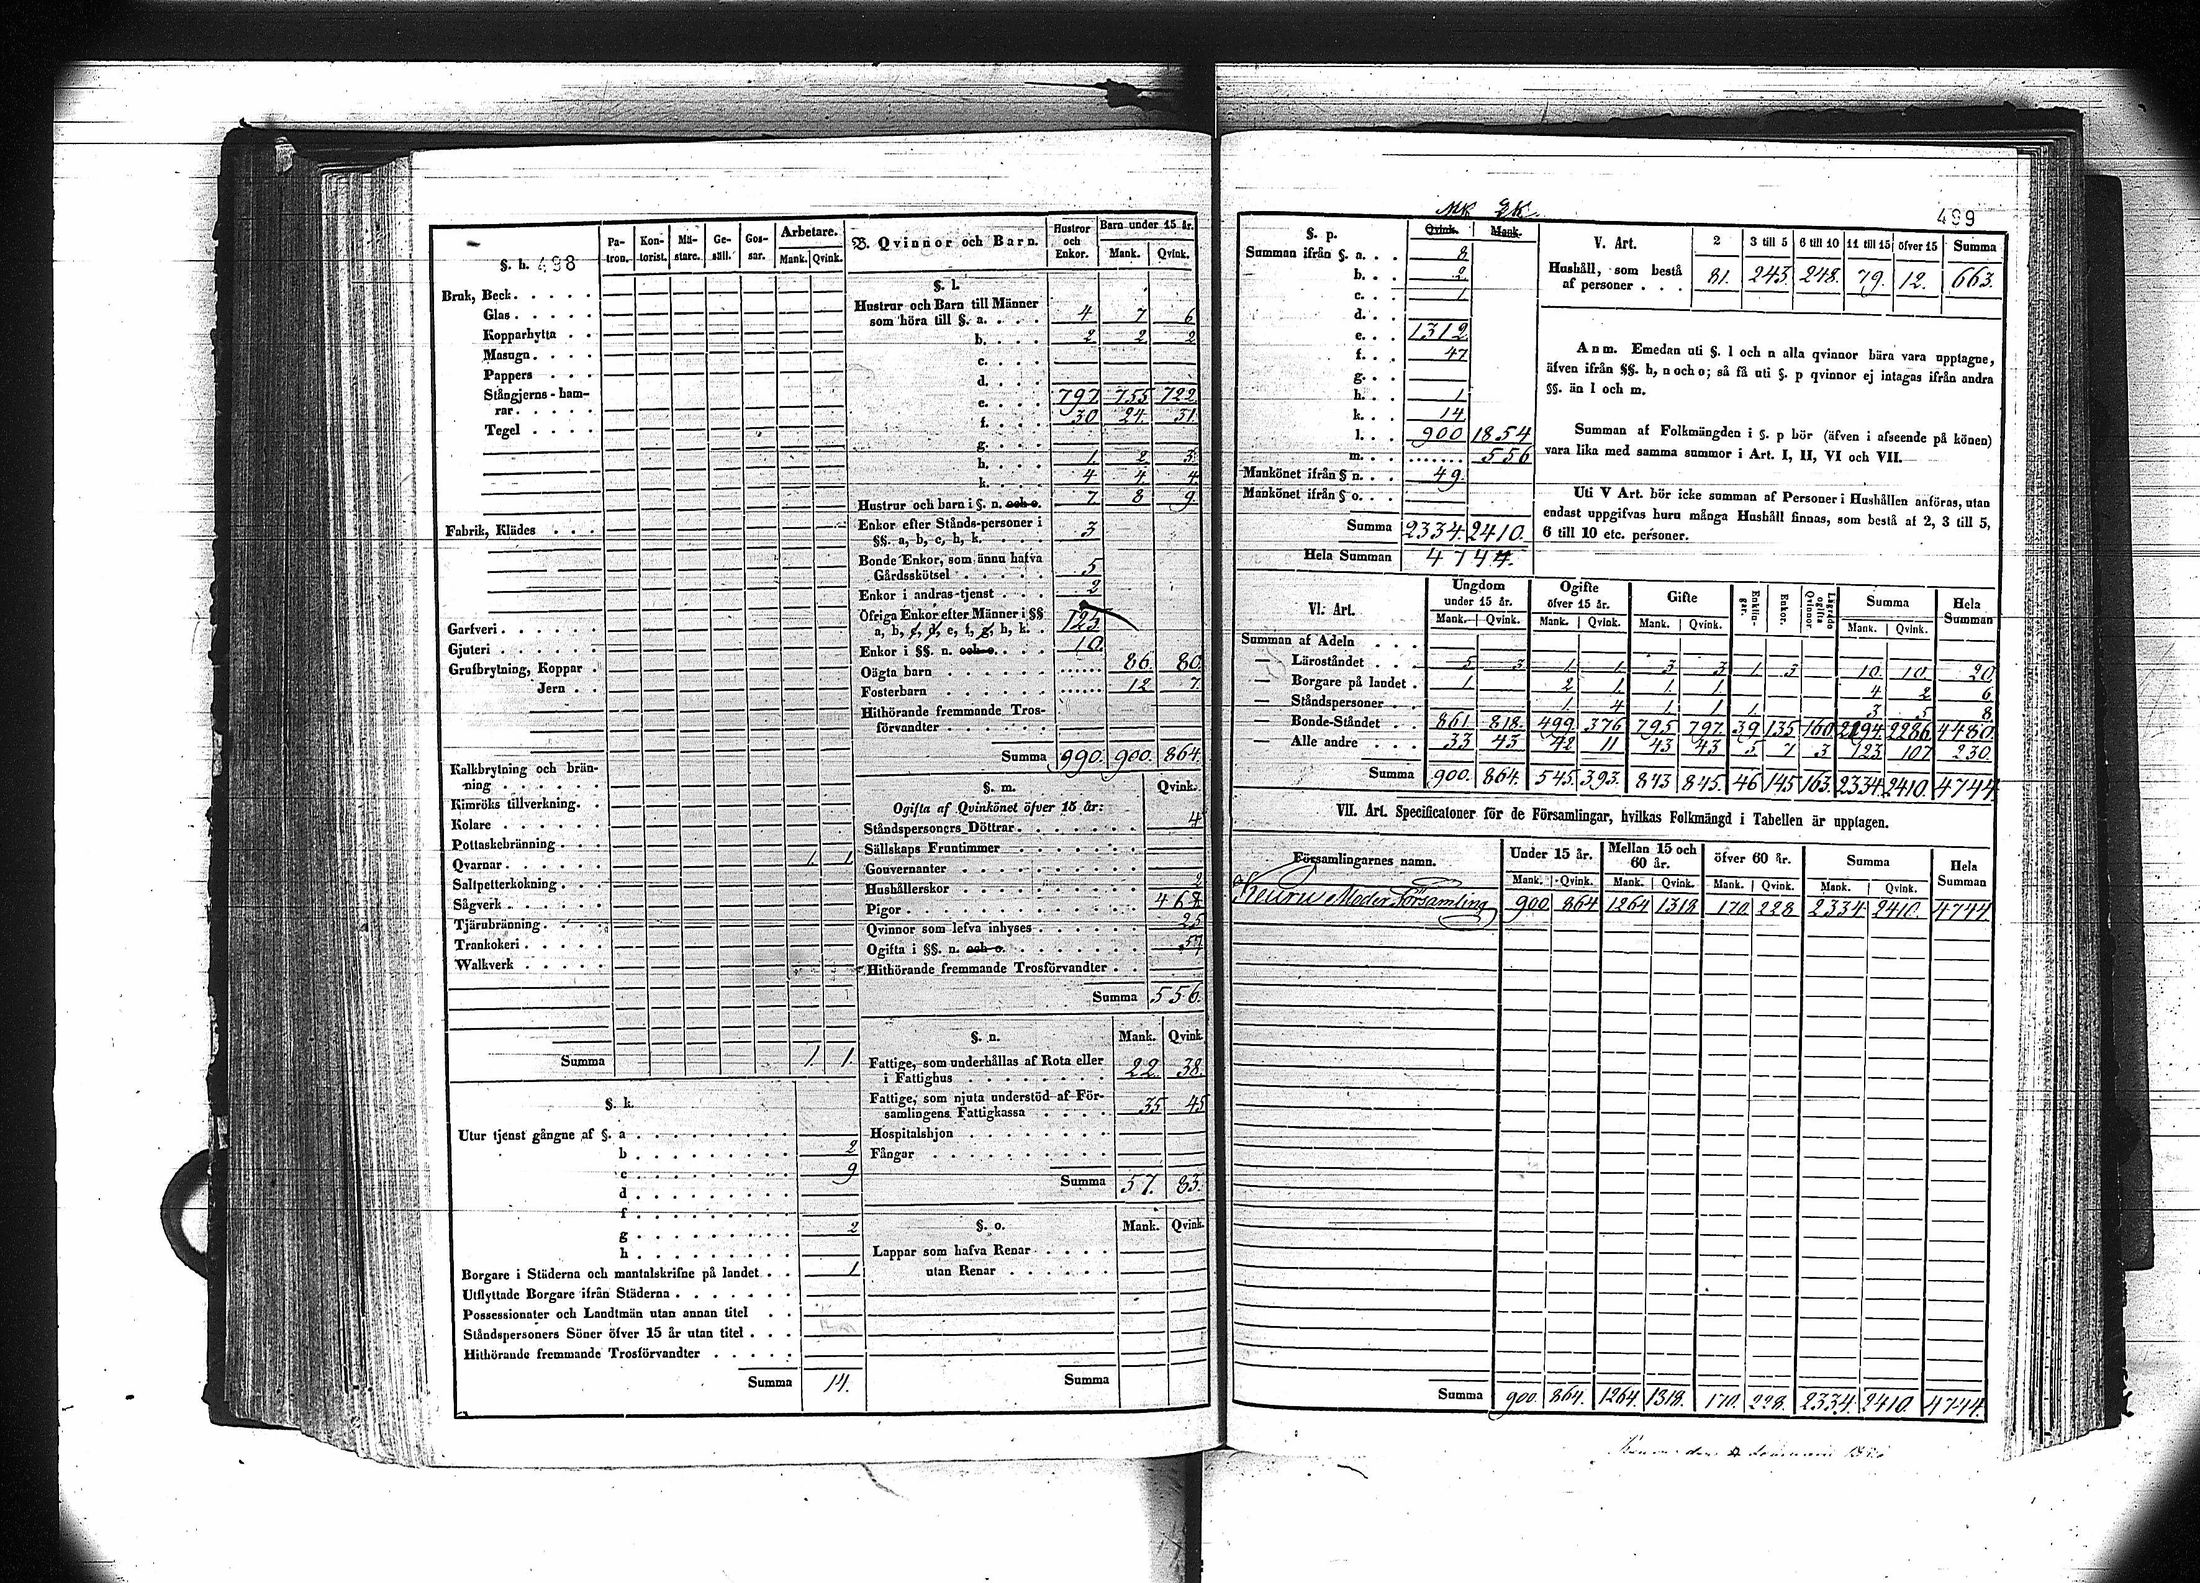 §. h. 498 Pa- Kon- Mä- Ge- Gos- Arbetare.
tron. torist. stare. säll. sar. Mank. Qvink.
Bruk, Beck
Glas
Kopparhytta
Masugn
Pappers
Stångjerns-ham-
rar
Tegel
Fabrik, Klädes
Garfveri
Gjuteri
Grufbrytning, Koppar
Jern
Kalkbrytning och brän-
ning
Kimröks tillverkning
Kolare
Pottaskebränning
Qvarnar 1. 1
Saltpetterkokning
Sågverk
Tjärubränning
Trankokeri
Walkverk
Summa 1. 1.
§. k.
Utur tjenst gångne af §. a
b 2
c 9
d
f
g 2
h
Borgare i Städerna och mantalskrifne på landet 1
Utflyttade Borgare ifrån Städerna
Possessionater och Landtmän utan annan titel
Ståndspersoners Söner öfver 15 år utan titel
Hithörande fremmande Trosförvandter
Summa 14.
B. Qvinnor och Barn. Hustror och Enkor. Barn under 15 år.
Mank. Qvink.
§. l.
Hustrur och Barn till Männer
som höra till §. a. 4 7 6
b. 2 2 2
c.
d.
e. 797 755 722
f. 30 24. 31.
g.
h. 1. 2 3
k. 4 4 4
Hustrur och barn i §. n. och o. 7 8 9.
Enkor efter Stånds-personer i
§§. a, b, c, h, k. 3
Bonde Enkor, som ännu hafva
Gårdsskötsel 5
Enkor i andras tjenst 2
Öfriga Enkor efter Männer i §§
a, b, c, d, e, f, g, h, k. 125.
Enkor i §§. n. och o. 10.
Oägta barn 86. 80.
Fosterbarn 12 7.
Hithörande fremmande Tros-
förvandter
Summa 990. 900. 864.
§. m. Qvink.
Ogifta af Qvinkönet öfver 15 år:
Ståndspersoners Döttrar 4
Sällskaps Fruntimmer
Gouvernanter
Hushållerskor 2
Pigor 468
Qvinnor som lefva inhyses 25
Ogifta i §§. n. och o. 57
Hithörande fremmande Trosförvandter
Summa 556.
§. n. Mank. Qvink.
Fattige, som underhållas af Rota eller
i Fattighus 22. 38.
Fattige, som njuta understöd af För-
samlingens Fattigkassa 35 45
Hospitalshjon
Fångar
Summa 57. 83.
§. o. Mank. Qvink.
Lappar som hafva Renar
utan Renar
Summa
499
Mk Qk.
§. p. Qvink. Mank.
Summan ifrån §. a. 8
b. 2
c. 1
d.
e. 1312
f. 47
g.
h. 1
k. 14
l. 900 1854
m. 556
Mankönet ifrån § n. 49.
Mankönet ifrån § o.
Summa 2334. 2410.
Hela Summan 4744.
V. Art. 2 3 till 5 6 till 10 11 till 15 öfver 15 Summa
Hushåll, som bestå
af personer 81. 243. 248. 79. 12. 663.
Anm. Emedan uti §. l och n alla qvinnor bära vara upptagne,
äfven ifrån §§. h, n och o; så få uti §. p qvinnor ej intagas ifrån andra
§§. än l och m.
Summan af Folkmängden i §. p bör (äfven i afseende på könen)
vara lika med samma summor i Art. I, II, VI och VII.
Uti V Art. bör icke summan af Personer i Hushållen anföras, utan
endast uppgifvas huru många Hushåll finnas, som bestå af 2, 3 till 5,
6 till 10 etc. personer.
VI. Art. Ungdom under 15 år. Ogifte öfver 15 år. Gifte Enklin-gar. Enkor. Lägrade ogifta Qvinnor Summa Hela Summan
Mank. Qvink. Mank. Qvink. Mank. Qvink. Mank. Qvink.
Summan af Adeln
— Läroståndet 5 3 1 1 3 3 1 3 10. 10. 20
— Borgare på landet 1. 2 1 1 1. 4 2 6
— Ståndspersoner 1 4 1 1 1. 3 5 8
— Bonde-Ståndet 861. 818. 499. 376 795 797. 39 135 160. 2194 2286 4480.
— Alle andre 33 43 42 11 43 43 5 7 3 123 107 230.
Summa 900. 864. 545. 393. 843 845. 46 145 163. 2334 2410. 4744.
VII. Art. Specificatoner för de Församlingar, hvilkas Folkmängd i Tabellen är upptagen.
Församlingarnes namn. Under 15 år. Mellan 15 och 60 år. öfver 60 år. Summa Hela Summan
Mank. Qvink. Mank. Qvink. Mank. Qvink. Mank. Qvink.
Keuru Moder Församling 900 864 1264 1318 170. 228 2334 2410. 4744.
Summa 900. 864. 1264. 1318. 170. 228. 2334. 2410. 4744.